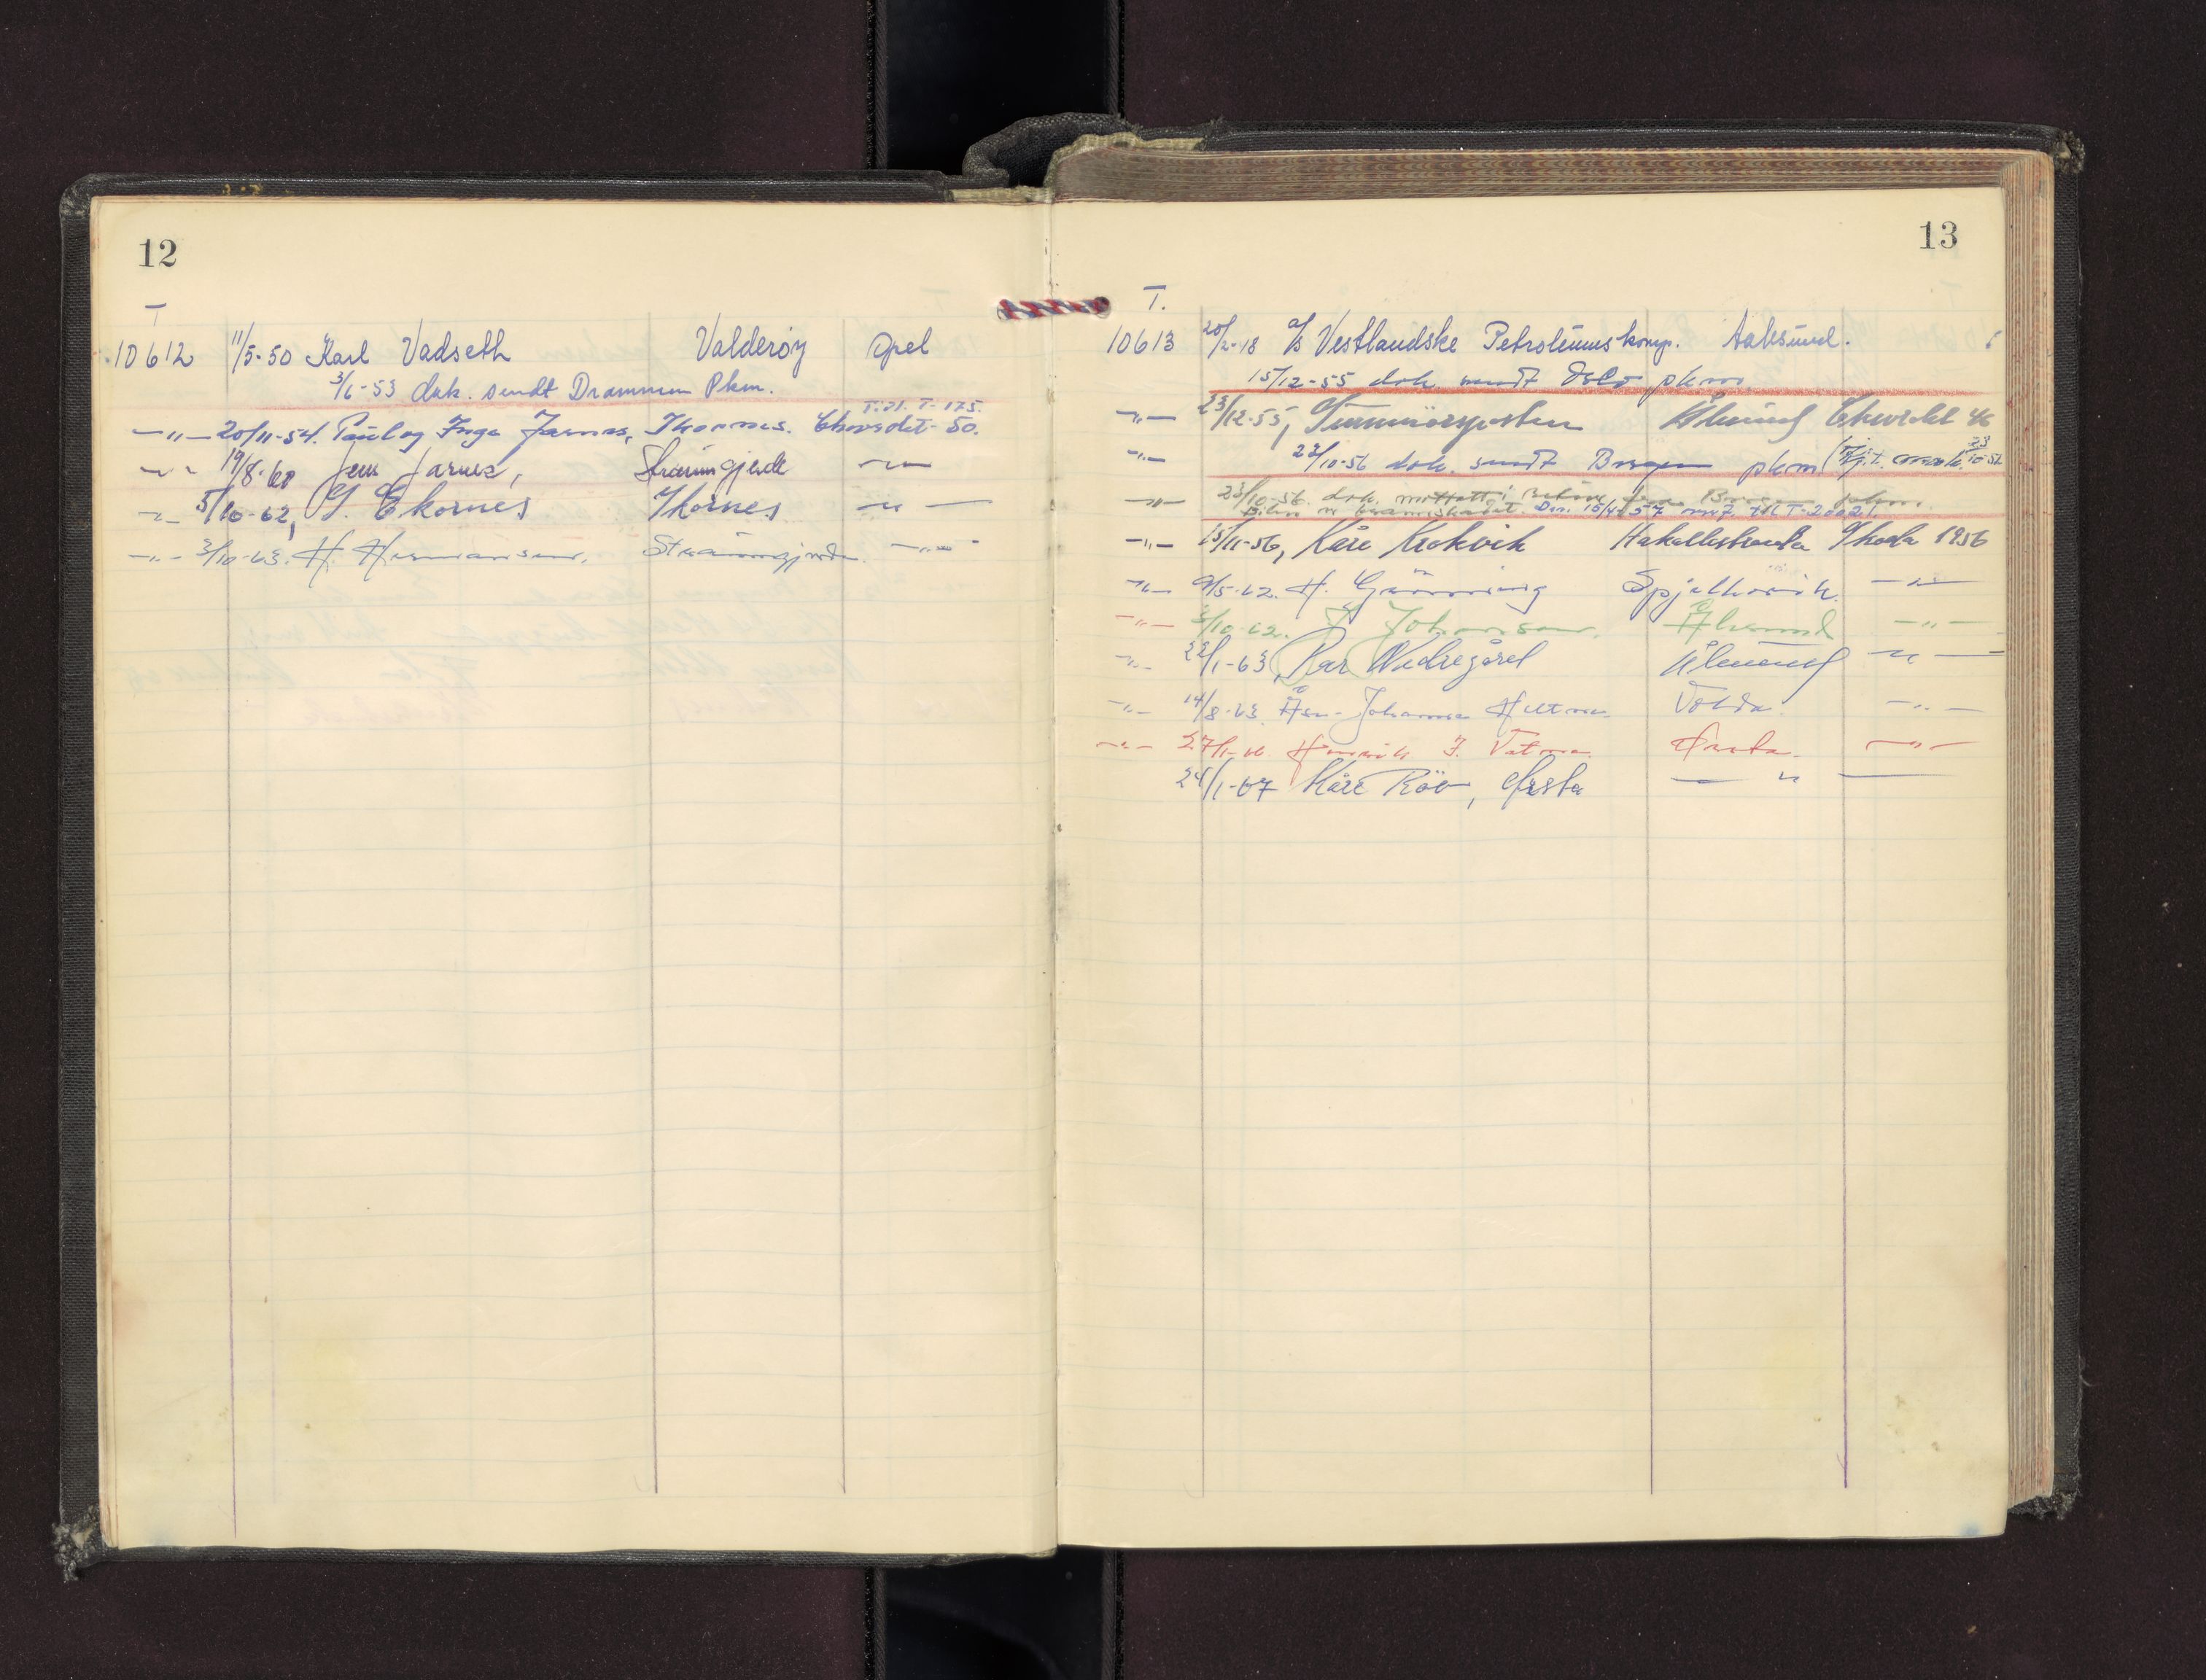 12
T
10612 11/5-50 Karl Vadseth Valderøy Opel
3/6-53 dok. sendt Drammen Pkm.
Tidl. T-175.
—"— 20/11-54. Paul og Inge Jarnes, Ikornes. Chevrolet-50.
—"— 19/8-60 Jens Jarnes, Straumgjerde —"—
—"— 5/10-62, Ekornes Ikornes —"—
—"— 3/10-63. H. Hermansen, Straumgjerde —"—
13
T.
10613 20/2-48 A/S Vestlandske Petroleumskomp. Aalesund.
15/12-55 dok. sendt Oslo pkm
—"— 23/12-55, Sunnmørsposten Ålesund Chevrolet 46
—"— 22/10-56 dok. sendt Bergen pkm
—"— 23/10-56 dok. mottatt i Bergen
15/4-57 T-20021.
—"— 15/11-56, Kåre Krokvik Hakallestranda Skoda 1956
—"— 9/5-62. H. Grønning Spjelkavik —"—
—"— 5/10-62. Johansen. Ålesund —"—
—"— 22/1-63, Per Nedregård Ålesund —"—
—"— 14/8-63. Johanne Volda —"—
—"— 27/1-66. Henrik J. Vatne Ørsta —"—
24/1-67 Kåre Röv, Ørsta —"—